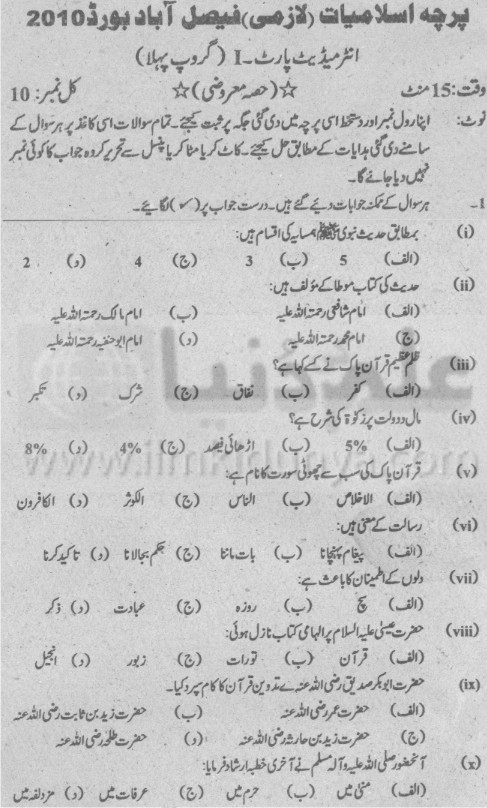 پرچہ اسلامیات (لازمی) فیصل آباد بورڈ 2010
انٹرمیڈیٹ پارٹ-I (گروپ پہلا)
وقت: 15 منٹ ☆(حصہ معروضی)☆ کل نمبر: 10
نوٹ: اپنا رول نمبر اور دستخط اسی پرچہ میں دی گئی جگہ پر ثبت کیجئے۔ تمام سوالات اسی کاغذ پر ہر سوال کے
سامنے دی گئی ہدایات کے مطابق حل کیجئے۔ کاٹ کر یا مٹا کر یا پنسل سے تحریر کردہ جواب کا کوئی نمبر
نہیں دیا جائے گا۔
1- ہر سوال کے ممکنہ جوابات دیئے گئے ہیں۔ درست جواب پر (✓) لگائیے۔
(i) بمطابق حدیث نبوی ﷺ ہمسایہ کی اقسام ہیں:
(الف) 5 (ب) 3 (ج) 4 (د) 2
(ii) حدیث کی کتاب موطا کے مؤلف ہیں:
(الف) امام شافعی رحمتہ اللہ علیہ (ب) امام مالک رحمتہ اللہ علیہ
(ج) امام محمد رحمتہ اللہ علیہ (د) امام ابو حنیفہ رحمتہ اللہ علیہ
(iii) ظلم عظیم قرآن پاک نے کسے کہا ہے؟
(الف) کفر (ب) نفاق (ج) شرک (د) تکبر
(iv) مال و دولت پر زکوٰۃ کی شرح ہے؟
(الف) 5% (ب) اڑھائی فیصد (ج) 4% (د) 8%
(v) قرآن پاک کی سب سے چھوٹی سورت کا نام ہے:
(الف) الاخلاص (ب) الناس (ج) الکوثر (د) الکافرون
(vi) رسالت کے معنی ہیں:
(الف) پیغام پہنچانا (ب) بات ماننا (ج) حکم بجالانا (د) تاکید کرنا
(vii) دلوں کے اطمینان کا باعث ہے:
(الف) حج (ب) روزہ (ج) عبادت (د) ذکر
(viii) حضرت عیسیٰ علیہ السلام پر الہامی کتاب نازل ہوئی:
(الف) قرآن (ب) تورات (ج) زبور (د) انجیل
(ix) حضرت ابوبکر صدیق رضی اللہ عنہ نے تدوین قرآن کا کام سپرد کیا۔
(الف) حضرت عمر رضی اللہ عنہ (ب) حضرت زید بن ثابت رضی اللہ عنہ
(ج) حضرت زید بن حارثہ رضی اللہ عنہ (د) حضرت طلحہ رضی اللہ عنہ
(x) آنحضور صلی اللہ علیہ و آلہ وسلم نے آخری خطبہ ارشاد فرمایا:
(الف) منیٰ میں (ب) حرم میں (ج) عرفات میں (د) مزدلفہ میں
علم کی دنیا
www.ilmkidunya.com